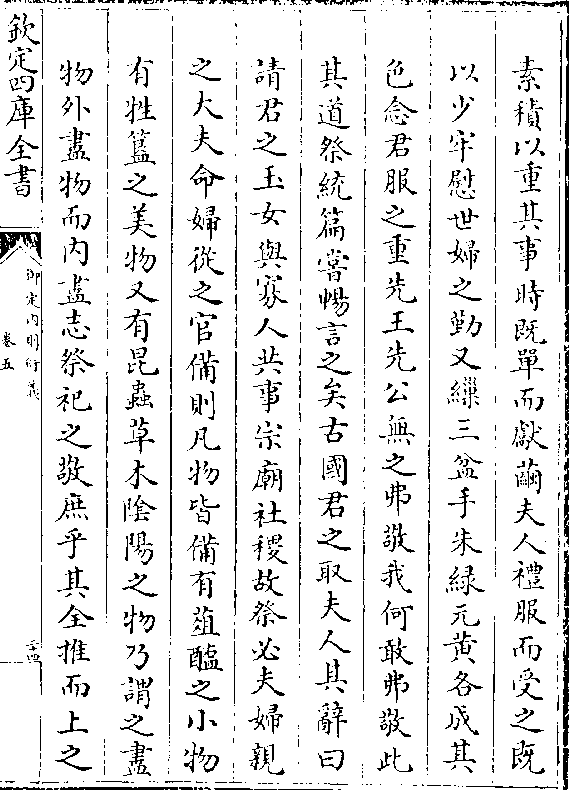 素積以重其事時既單而獻繭夫人禮服而受之既
以少牢慰世婦之勤又繅三盆手朱綠元黃各成其
色念君服之重先王先公無之弗敬我何敢弗敬此
其道祭統篇嘗暢言之矣古國君之取夫人其辭曰
請君之玉女與寡人共事宗廟社稷故祭必夫婦親
之大夫命婦從之官備則凡物皆備有葅醢之小物
有牲簋之美物又有昆蟲草木陰陽之物乃謂之盡
物外盡物而內盡志祭祀之敬庶乎其全推而上之
欽定四庫全書
御定內則衍義
卷五
三四